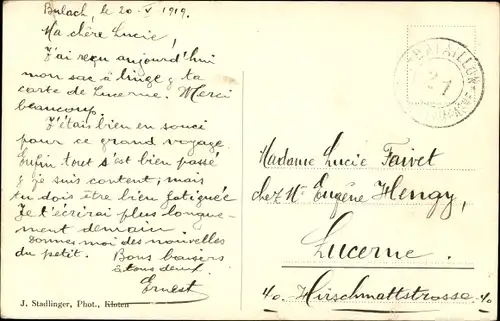 Bulach, le 20-V 1919.
Ma chère Lucie,
J'ai reçu aujourd'hui
mon sac à linge & ta
carte de Lucerne. Merci
beaucoup.
J'étais bien en souci
pour ce grand voyage.
Enfin tout s'est bien passé
& je suis content; mais
tu dois être bien fatiguée
Je t'écrirai plus longue-
ment demain
donnes moi des nouvelles
du petit. Bons baisers
à tous deux.
Ernest
J. Stadlinger, Phot., Kloten
BATAILLON
21
Madame Lucie Faivet
chez Mr Eugène Hengy,
Lucerne.
40 Hirschmattstrasse 40